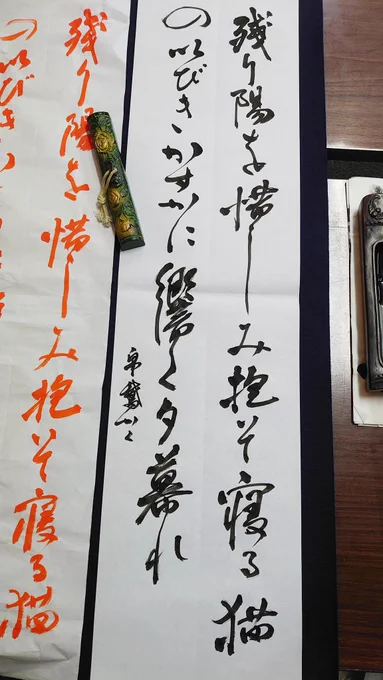 残り陽を惜しみ抱いて寝る猫
のいびきかすかに響く夕暮れ
残り陽を惜しみ抱いて寝る猫
のいびきか